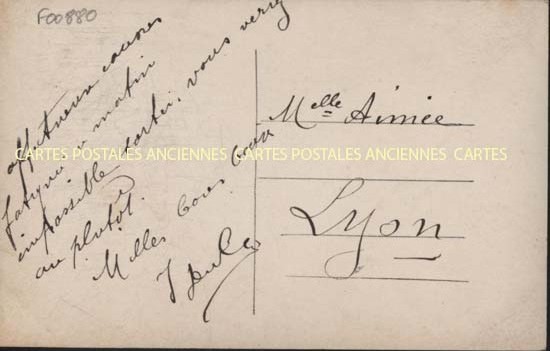 F00880
affectueux
fatigué ce matin
impossible sortir, vous verrez
au plutôt.
Milles bons
Melle Aimée
Lyon
CARTES POSTALES ANCIENNES CARTES POSTALES ANCIENNES CARTES